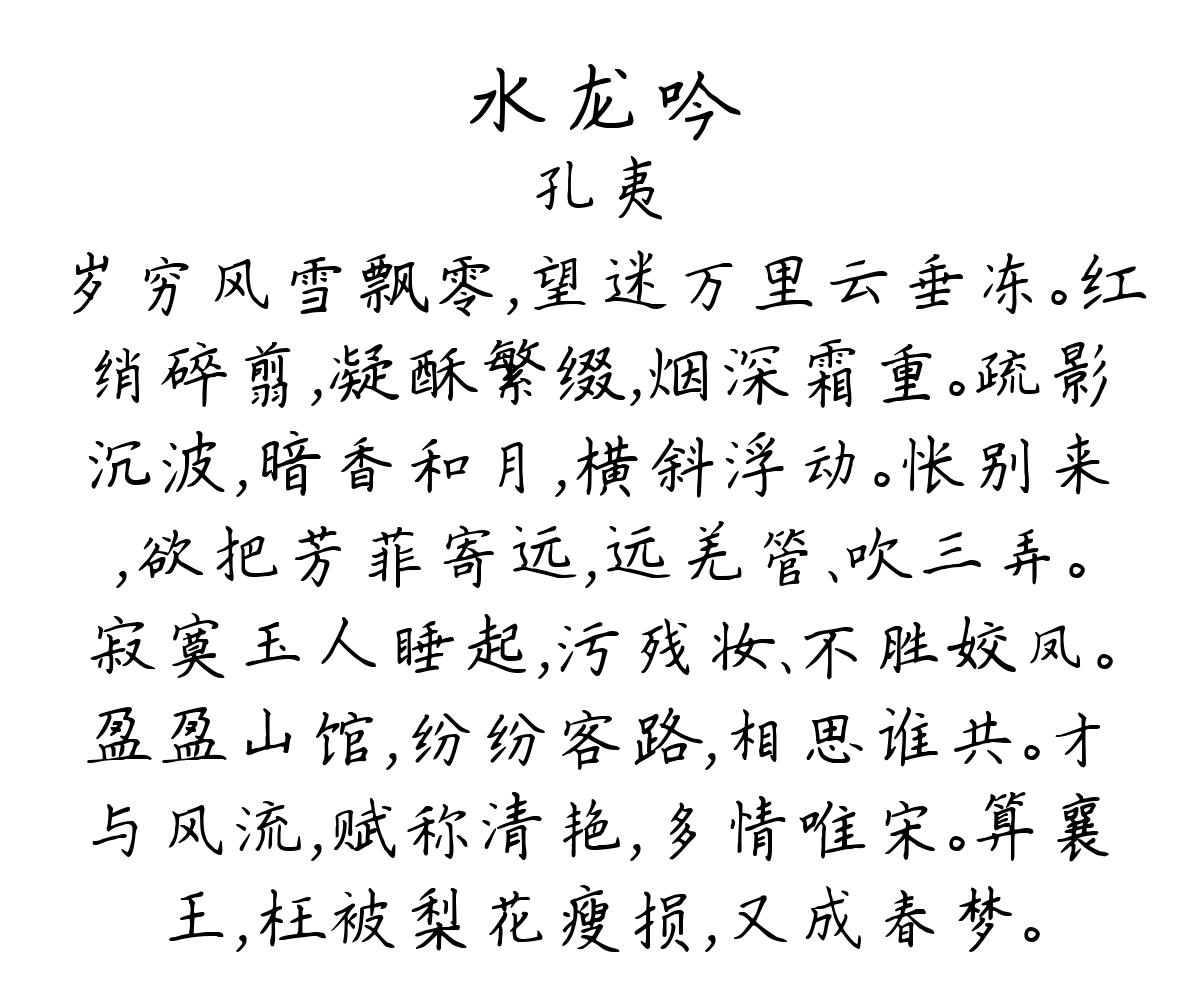 水龙吟
孔夷
岁穷风雪飘零,望迷万里云垂冻。红
绡碎翦,凝酥繁缀,烟深霜重。疏影
沉波,暗香和月,横斜浮动。怅别来
,欲把芳菲寄远,远羌管、吹三弄。
寂寞玉人睡起,污残妆、不胜姣凤。
盈盈山馆,纷纷客路,相思谁共。才
与风流,赋称清艳,多情唯宋。算襄
王,枉被梨花瘦损,又成春梦。